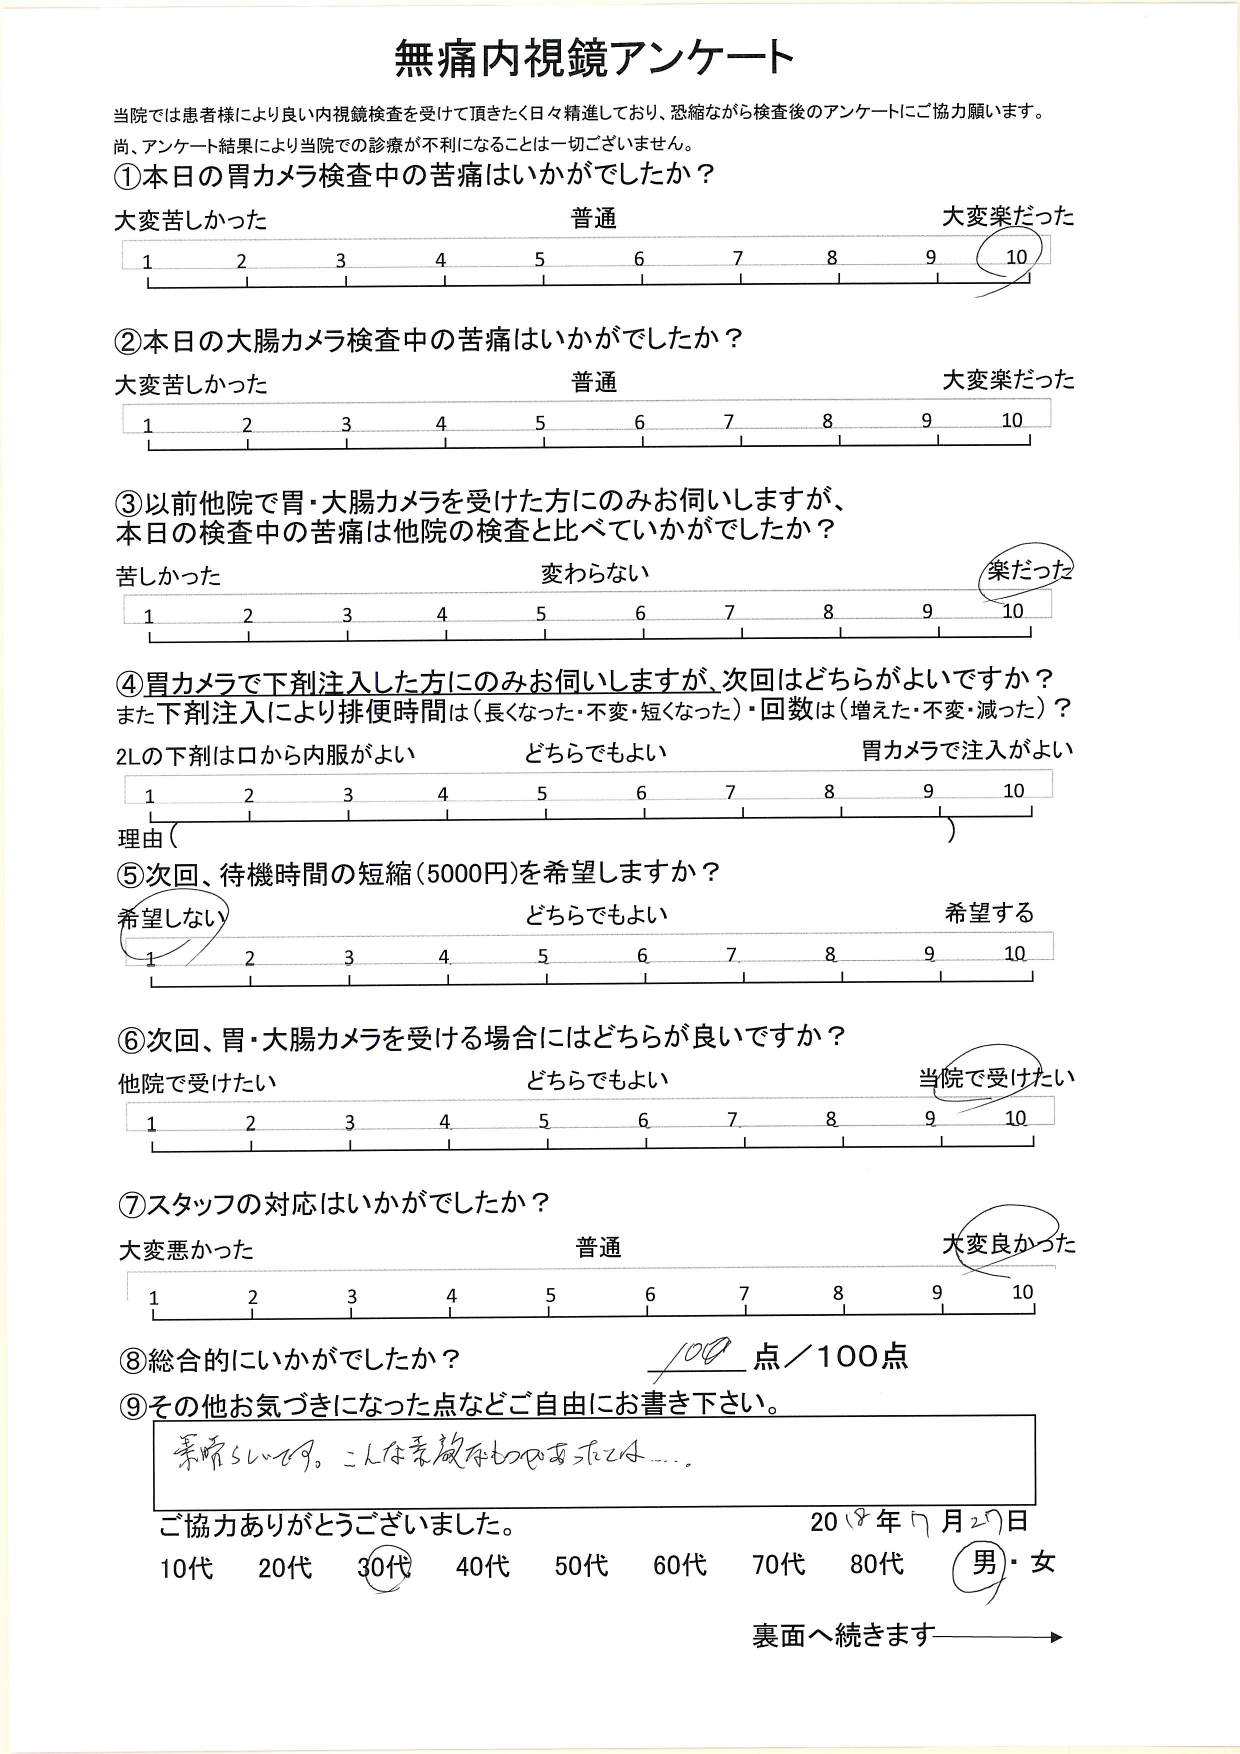 無痛内視鏡アンケート
当院では患者様により良い内視鏡検査を受けて頂きたく日々精進しており、恐縮ながら検査後のアンケートにご協力願います。
尚、アンケート結果により当院での診療が不利になることは一切ございません。
①本日の胃カメラ検査中の苦痛はいかがでしたか？
大変苦しかった 普通 大変楽だった
1 2 3 4 5 6 7 8 9 10
②本日の大腸カメラ検査中の苦痛はいかがでしたか？
大変苦しかった 普通 大変楽だった
1 2 3 4 5 6 7 8 9 10
③以前他院で胃・大腸カメラを受けた方にのみお伺いしますが、
本日の検査中の苦痛は他院の検査と比べていかがでしたか？
苦しかった 変わらない 楽だった
1 2 3 4 5 6 7 8 9 10
④胃カメラで下剤注入した方にのみお伺いしますが、次回はどちらがよいですか？
また下剤注入により排便時間は（長くなった・不変・短くなった）・回数は（増えた・不変・減った）？
2Lの下剤は口から内服がよい どちらでもよい 胃カメラで注入がよい
1 2 3 4 5 6 7 8 9 10
理由（ ）
⑤次回、待機時間の短縮（5000円）を希望しますか？
希望しない どちらでもよい 希望する
1 2 3 4 5 6 7 8 9 10
⑥次回、胃・大腸カメラを受ける場合にはどちらが良いですか？
他院で受けたい どちらでもよい 当院で受けたい
1 2 3 4 5 6 7 8 9 10
⑦スタッフの対応はいかがでしたか？
大変悪かった 普通 大変良かった
1 2 3 4 5 6 7 8 9 10
⑧総合的にいかがでしたか？ 100 点／100点
⑨その他お気づきになった点などご自由にお書き下さい。
素晴らしいです。こんな素敵なものであったとは….
ご協力ありがとうございました。 2018年7月27日
10代 20代 30代 40代 50代 60代 70代 80代 男・女
裏面へ続きます